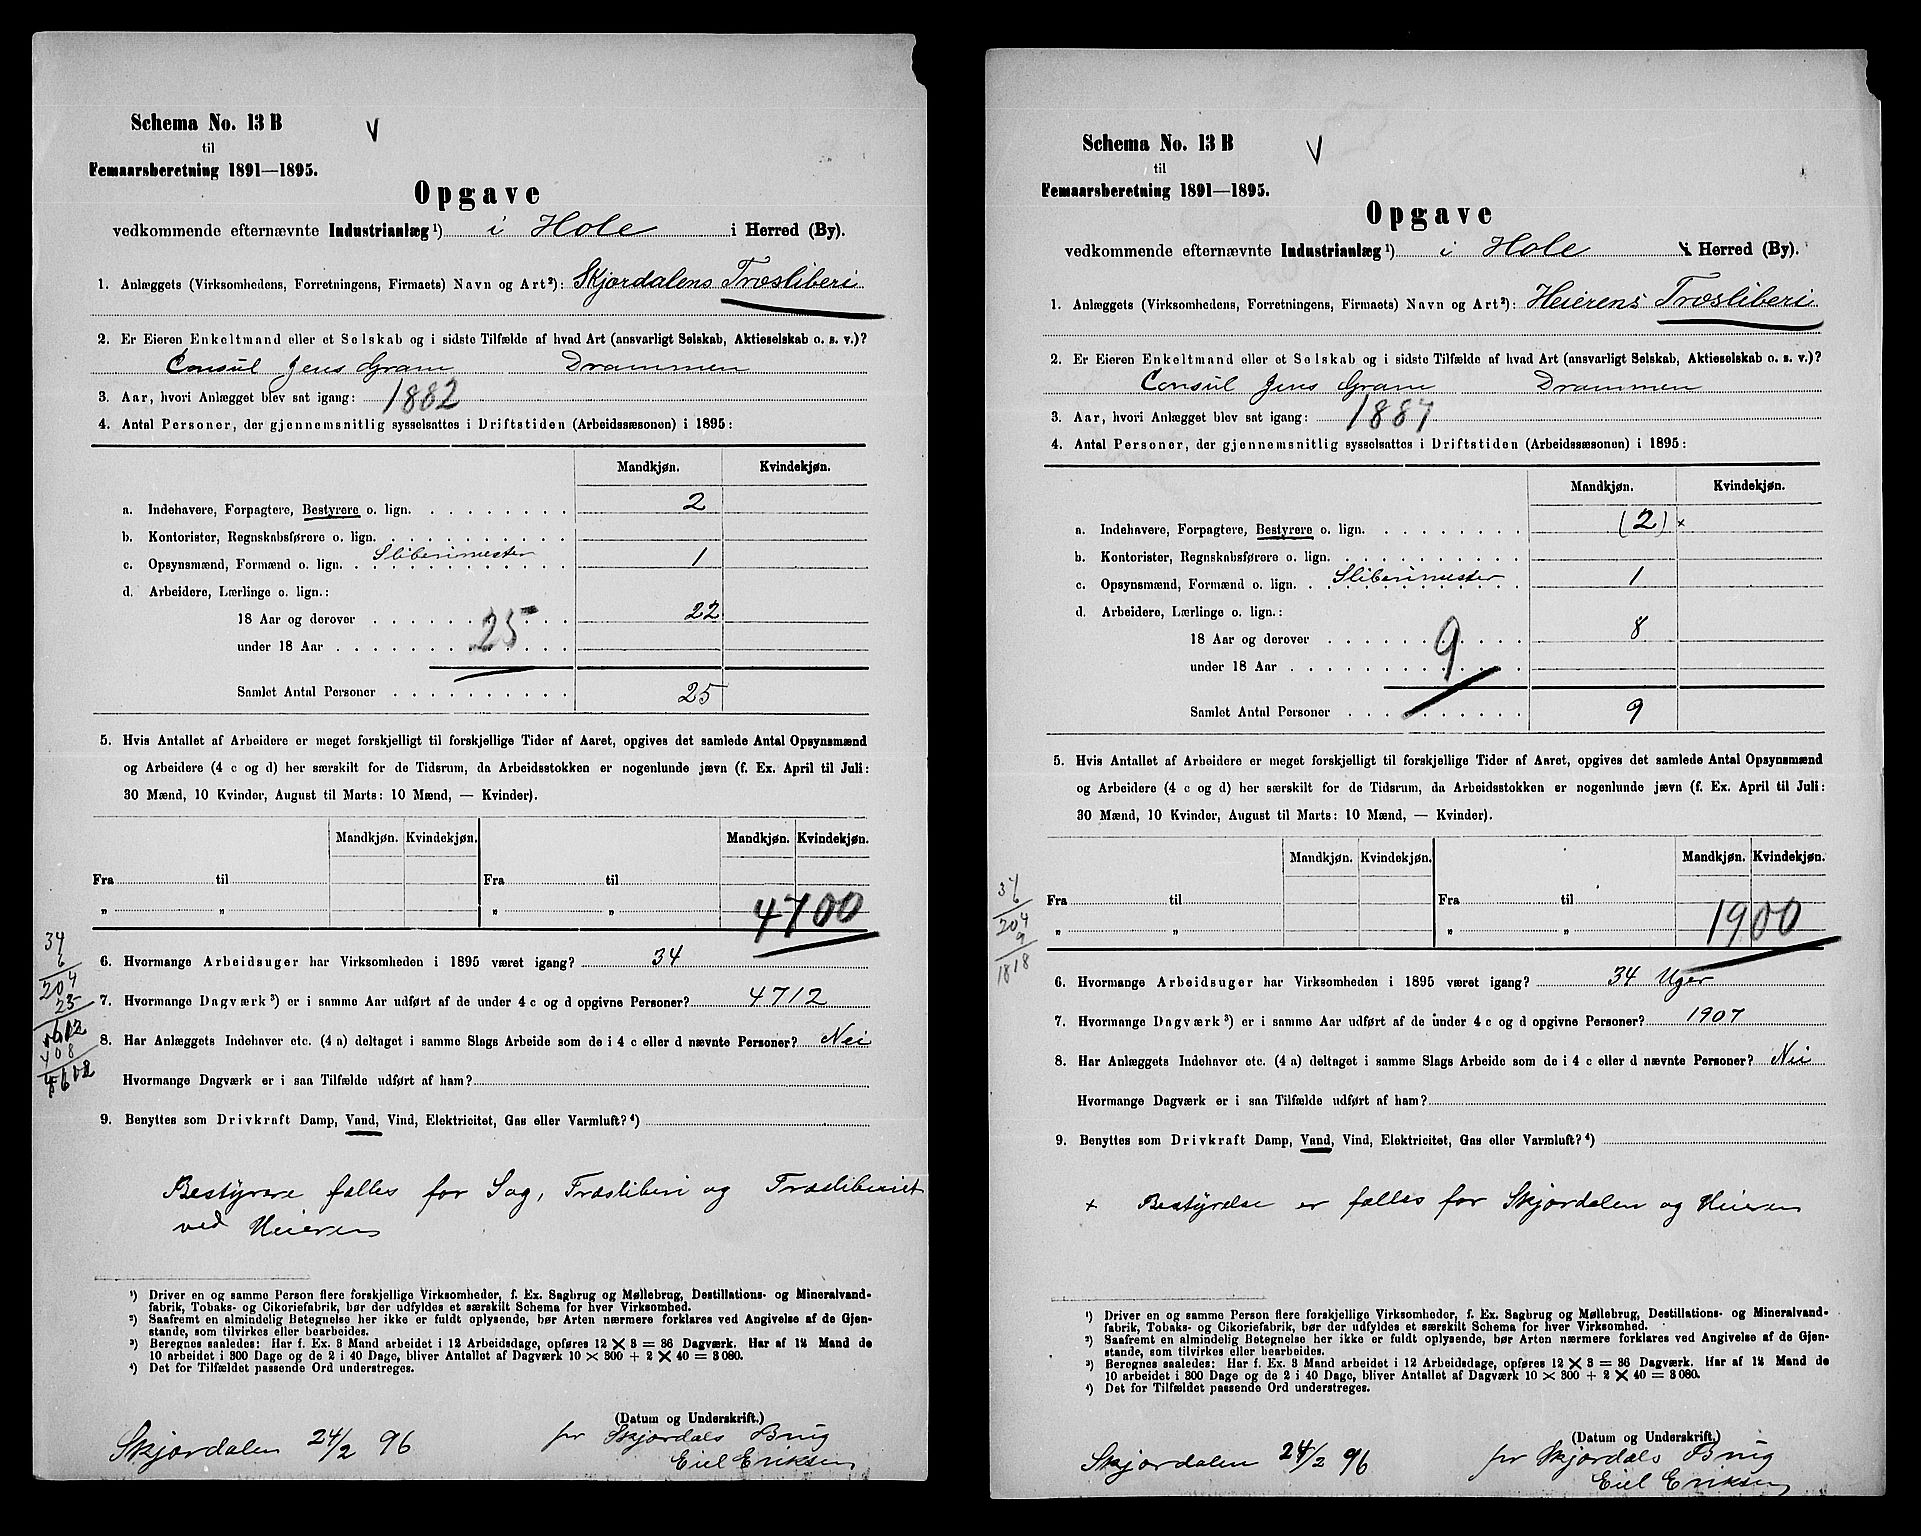 Schema No. 13 B
til
Femaarsberetning 1891—1895.
V
Opgave
vedkommende efternævnte Industrianlæg ¹) i Hole i Herred (By).
1. Anlæggets (Virksomhedens, Forretningens, Firmaets) Navn og Art²): Skjordalens Træsliberi
2. Er Eieren Enkeltmand eller et Selskab og i sidste Tilfælde af hvad Art (ansvarligt Selskab, Aktieselskab o. s. v.)?
Consul Jens Gram Drammen
3. Aar, hvori Anlægget blev sat igang: 1882
4. Antal Personer, der gjennemsnitlig sysselsattes i Driftstiden (Arbeidssæsonen) i 1895:
Mandkjøn. Kvindekjøn.
a. Indehavere, Forpagtere, Bestyrere o. lign. 2
b. Kontorister, Regnskabsførere o. lign.
c. Opsynsmænd, Formænd o. lign. Sliberimester 1
d. Arbeidere, Lærlinge o. lign.:
18 Aar og derover 22
under 18 Aar 25
Samlet Antal Personer 25
5. Hvis Antallet af Arbeidere er meget forskjelligt til forskjellige Tider af Aaret, opgives det samlede Antal Opsynsmænd
og Arbeidere (4 c og d) her særskilt for de Tidsrum, da Arbeidsstokken er nogenlunde jævn (f. Ex. April til Juli:
30 Mænd, 10 Kvinder, August til Marts: 10 Mænd, — Kvinder).
Mandkjøn. Kvindekjøn. Mandkjøn. Kvindekjøn.
Fra til Fra til
„ „ „ „ 4700
34
6
204
25
6. Hvormange Arbeidsuger har Virksomheden i 1895 været igang? 34
7. Hvormange Dagværk³) er i samme Aar udført af de under 4 c og d opgivne Personer? 4712
8. Har Anlæggets Indehaver etc. (4 a) deltaget i samme Slags Arbeide som de i 4 c eller d nævnte Personer? Nei
408
Hvormange Dagværk er i saa Tilfælde udført af ham?
9. Benyttes som Drivkraft Damp, Vand, Vind, Elektricitet, Gas eller Varmluft?⁴)
Bestyrere fælles for Sag, Træsliberi og Træsliberiet
ved Heieren
¹) Driver en og samme Person flere forskjellige Virksomheder, f. Ex. Sagbrug og Møllebrug, Destillations- og Mineralvand-
fabrik, Tobaks- og Cikoriefabrik, bør der udfyldes et særskilt Schema for hver Virksomhed.
²) Saafremt en almindelig Betegnelse her ikke er fuldt oplysende, bør Arten nærmere forklares ved Angivelse af de Gjen-
stande, som tilvirkes eller bearbeides.
³) Beregnes saaledes: Har f. Ex. 3 Mand arbeidet i 12 Arbeidsdage, opføres 12 × 3 = 36 Dagværk. Har af 12 Mand de
10 arbeidet i 300 Dage og de 2 i 40 Dage, bliver Antallet af Dagværk 10 × 300 + 2 × 40 = 3080.
⁴) Det for Tilfældet passende Ord understreges.
(Datum og Underskrift.)
Skjordalen 24/2 96 for Skjordals Brug
Eiel Eriksen
Schema No. 13 B
til
Femaarsberetning 1891—1895.
V
Opgave
vedkommende efternævnte Industrianlæg ¹) i Hole i Herred (By).
1. Anlæggets (Virksomhedens, Forretningens, Firmaets) Navn og Art²): Heierens Træsliberi
2. Er Eieren Enkeltmand eller et Selskab og i sidste Tilfælde af hvad Art (ansvarligt Selskab, Aktieselskab o. s. v.)?
Consul Jens Gram Drammen
3. Aar, hvori Anlægget blev sat igang: 1887
4. Antal Personer, der gjennemsnitlig sysselsattes i Driftstiden (Arbeidssæsonen) i 1895:
Mandkjøn. Kvindekjøn.
a. Indehavere, Forpagtere, Bestyrere o. lign. (2) ×
b. Kontorister, Regnskabsførere o. lign.
c. Opsynsmænd, Formænd o. lign. Sliberimester 1
d. Arbeidere, Lærlinge o. lign.:
18 Aar og derover 8
under 18 Aar 9
Samlet Antal Personer 9
5. Hvis Antallet af Arbeidere er meget forskjelligt til forskjellige Tider af Aaret, opgives det samlede Antal Opsynsmænd
og Arbeidere (4 c og d) her særskilt for de Tidsrum, da Arbeidsstokken er nogenlunde jævn (f. Ex. April til Juli:
30 Mænd, 10 Kvinder, August til Marts: 10 Mænd, — Kvinder).
Mandkjøn. Kvindekjøn. Mandkjøn. Kvindekjøn.
Fra til Fra til
„ „ „ „ 1900
6
204
9
1818
6. Hvormange Arbeidsuger har Virksomheden i 1895 været igang? 34 Uger
7. Hvormange Dagværk³) er i samme Aar udført af de under 4 c og d opgivne Personer? 1907
8. Har Anlæggets Indehaver etc. (4 a) deltaget i samme Slags Arbeide som de i 4 c eller d nævnte Personer? Nei
Hvormange Dagværk er i saa Tilfælde udført af ham?
9. Benyttes som Drivkraft Damp, Vand, Vind, Elektricitet, Gas eller Varmluft?⁴)
× Bestyrelse er fælles for Skjordalen og Heieren
¹) Driver en og samme Person flere forskjellige Virksomheder, f. Ex. Sagbrug og Møllebrug, Destillations- og Mineralvand-
fabrik, Tobaks- og Cikoriefabrik, bør der udfyldes et særskilt Schema for hver Virksomhed.
²) Saafremt en almindelig Betegnelse her ikke er fuldt oplysende, bør Arten nærmere forklares ved Angivelse af de Gjen-
stande, som tilvirkes eller bearbeides.
³) Beregnes saaledes: Har f. Ex. 3 Mand arbeidet i 12 Arbeidsdage, opføres 12 × 3 = 36 Dagværk. Har af 12 Mand de
10 arbeidet i 300 Dage og de 2 i 40 Dage, bliver Antallet af Dagværk 10 × 300 + 2 × 40 = 3080.
⁴) Det for Tilfældet passende Ord understreges.
(Datum og Underskrift.)
Skjordalen 24/2 96 for Skjordals Brug
Eiel Eriksen